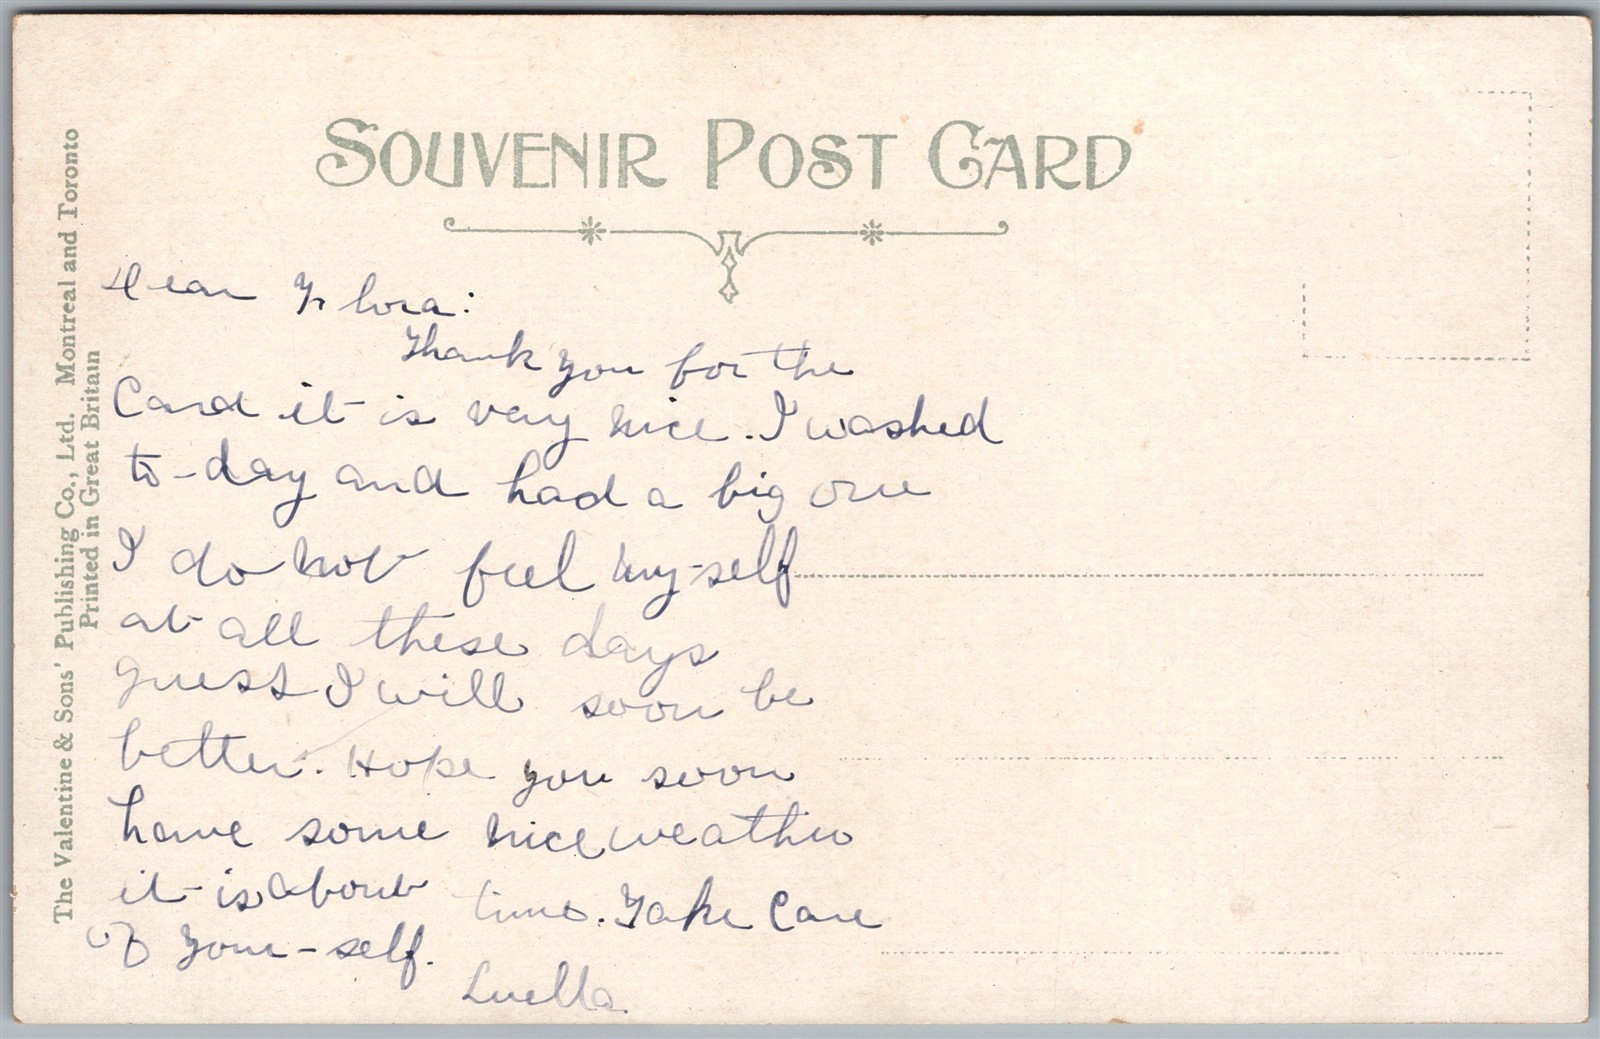 SOUVENIR POST CARD
The Valentine & Sons' Publishing Co., Ltd. Montreal and Toronto
Printed in Great Britain
Dear Flora:
Thank you for the
Card it is very nice. I washed
to-day and had a big one
I do not feel my-self
at all these days
guess I will soon be
better. Hope you soon
have some nice weather
it is about time. Take Care
Of your-self.
Luella